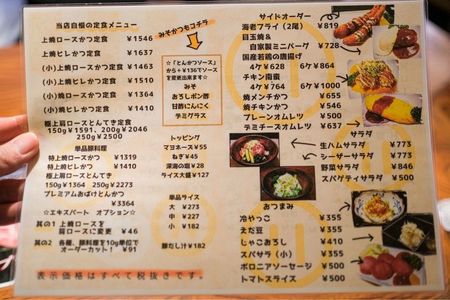 当店自慢の定食メニュー
上焼ロースかつ定食 ¥1546
上焼ヒレかつ定食 ¥1637
(小)上焼ロースかつ定食 ¥1464
(小)焼ロースかつ定食 ¥1319
(小)焼ヒレかつ定食 ¥1410
極上肩ロースとんてき定食
150g¥1591、200g¥2046
250g¥2500
単品豚料理
特上焼ロースかつ ¥1319
特上焼ヒレかつ ¥1410
極上肩ロースとんてき
150g¥1364 250g¥2273
プレミアムあげひれかつ
¥3364
☆エキスパート オプション☆
其の1 上焼ロースを
肩ロースに変更 ¥46
其の2 各種、豚料理を10g単位で
オーダーカット! ¥91
表示価格はすべて税抜きです。
みそかつもコチラ
☆『とんかつソース』
から+¥136でソース
を変更出来ます☆
みそ
おろしポン酢
甘酢にんにく
デミグラス
トッピング
マヨネーズ ¥55
ねぎ ¥45
深海の塩 ¥28
ライス大盛 ¥127
単品ライス
大 ¥273
中 ¥227
小 ¥182
豚だし汁 ¥182
サイドオーダー
海老フライ(2尾) ¥819
目玉焼&
自家製ミニバーグ ¥728
国産若鶏の唐揚げ
4ケ ¥628 6ケ ¥864
チキン南蛮
4ケ ¥764 6ケ ¥1000
焼メンチかつ ¥682
焼チキンかつ ¥682
プレーンオムレツ ¥500
デミチーズオムレツ ¥682
サラダ
生ハムサラダ ¥773
シーザーサラダ ¥773
野菜サラダ ¥846
スパゲティサラダ ¥500
おつまみ
冷やっこ ¥355
えだ豆 ¥355
じゃこおろし ¥410
スパサラ(小) ¥355
ボロニアソーセージ ¥500
トマトスライス ¥500